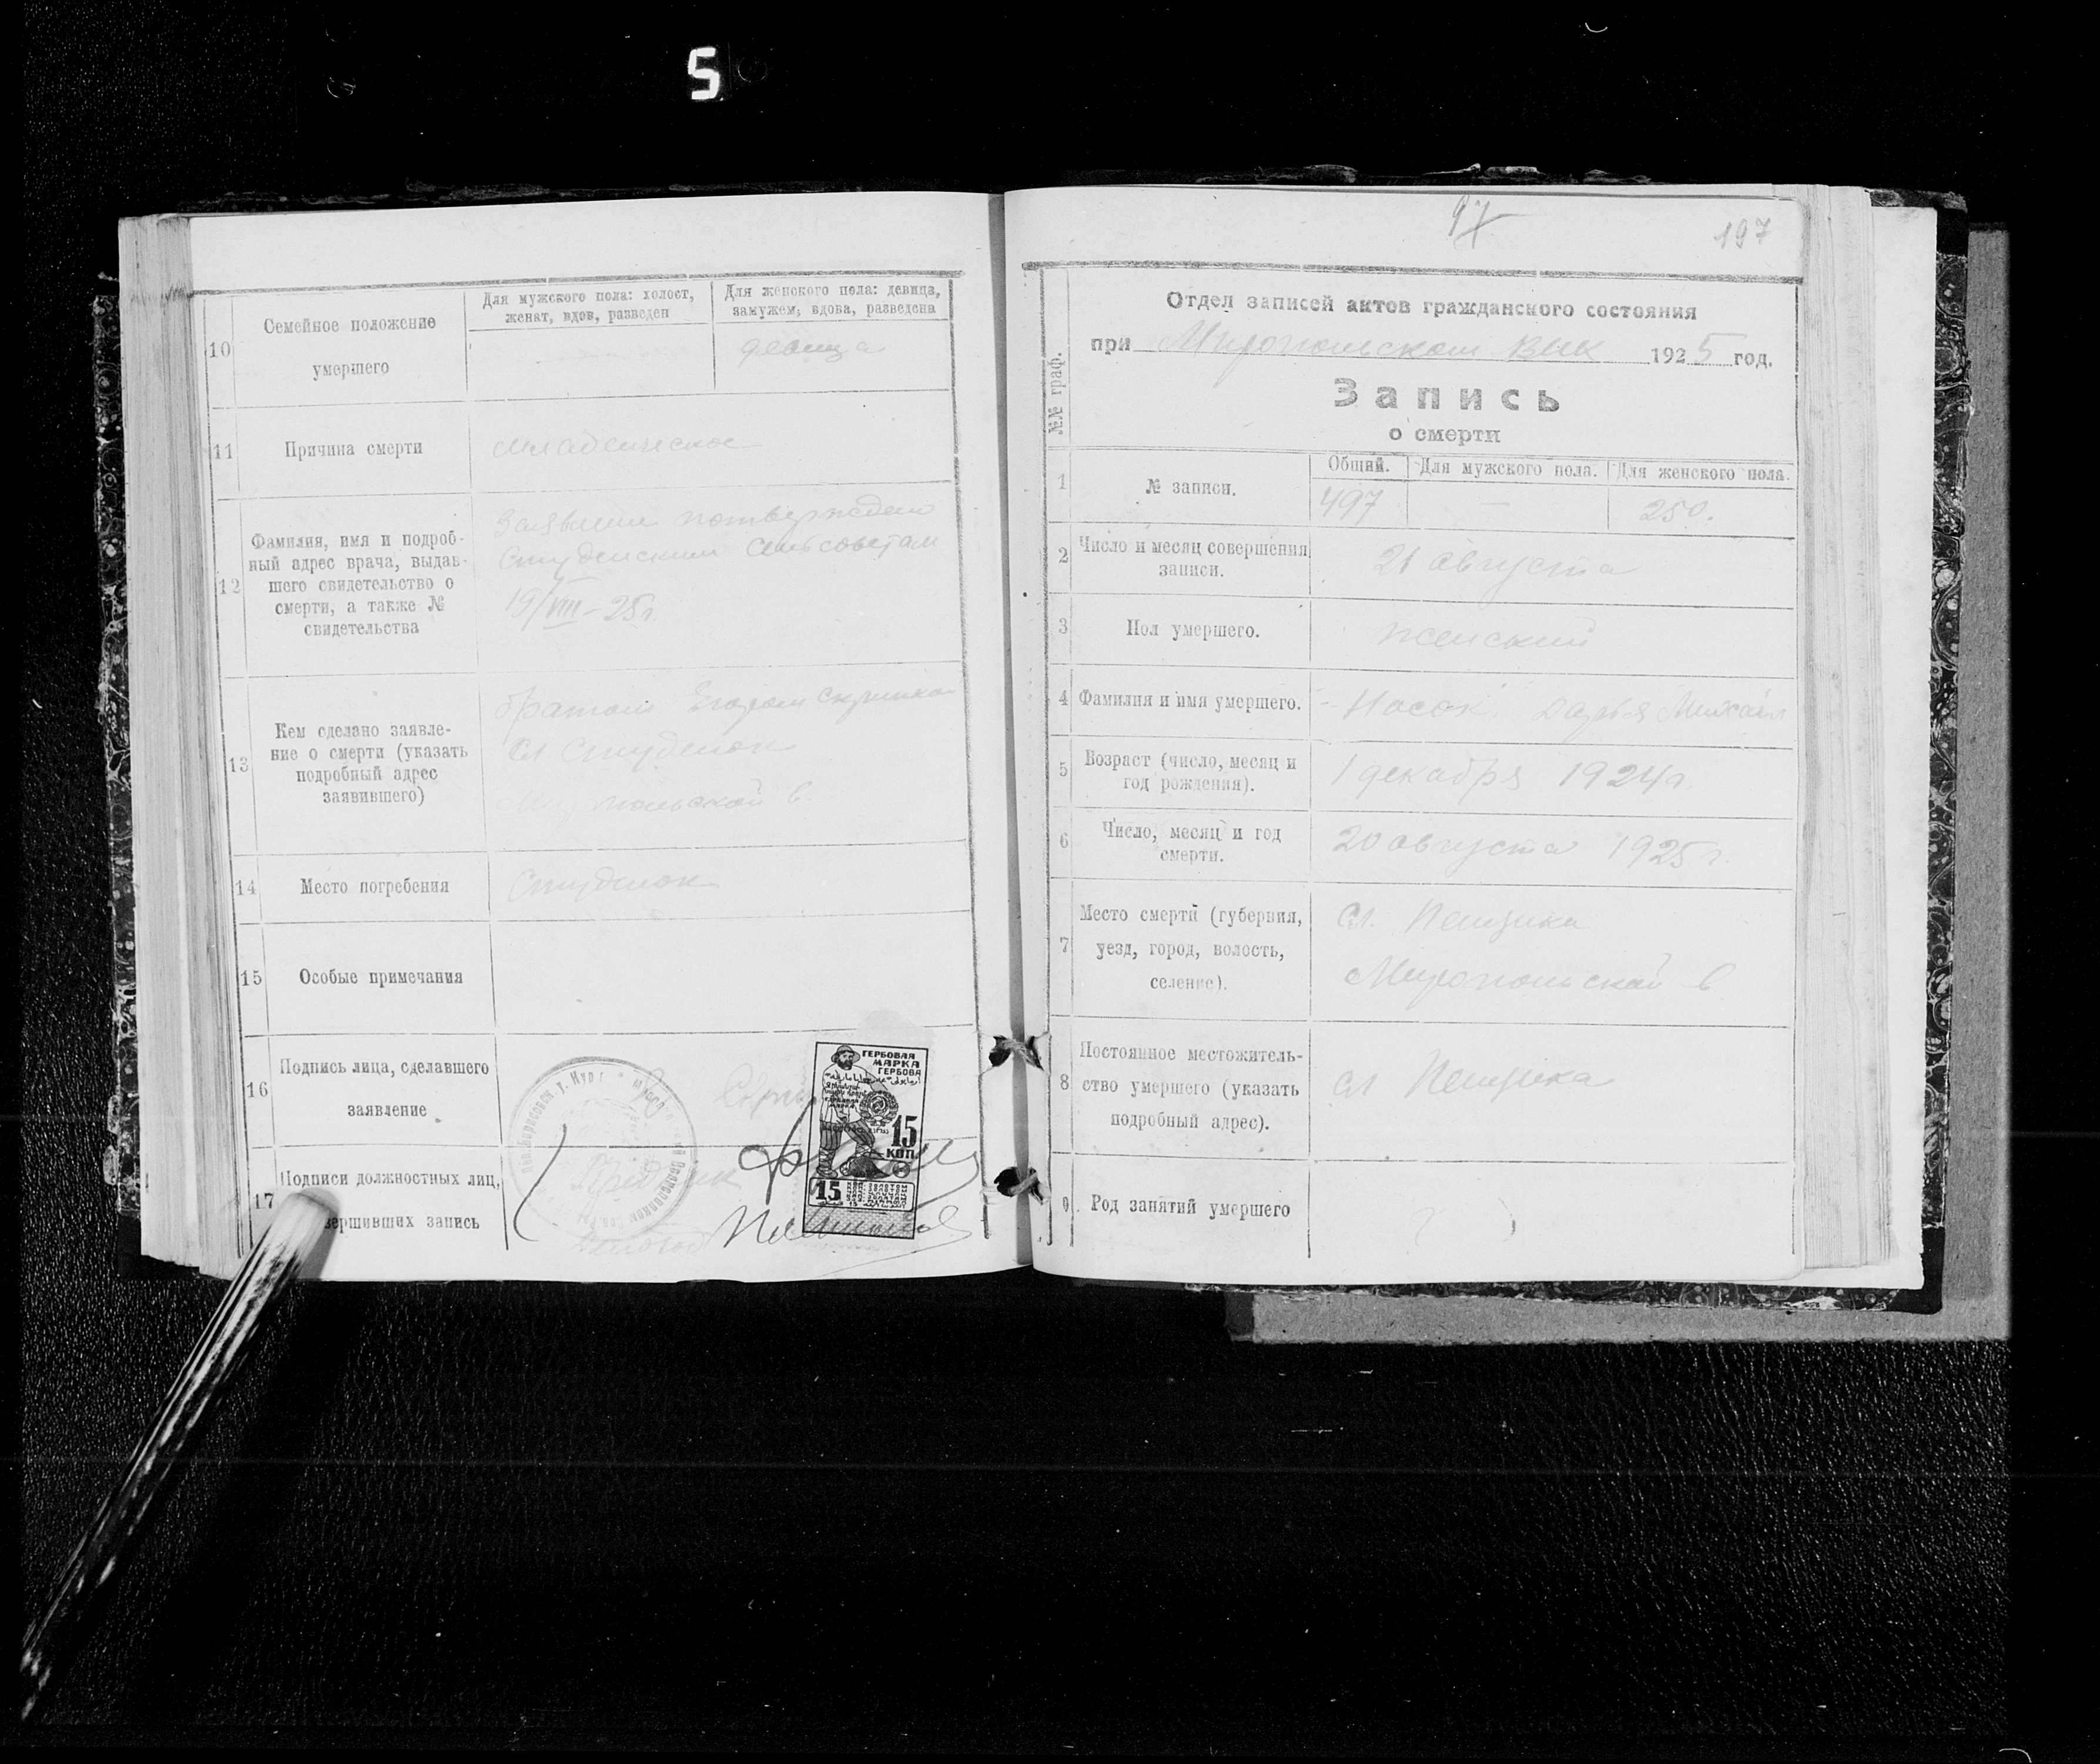 5
10
Семейное положение
умершего
Для мужского пола: холост,
женат, вдов, разведен
Для женского пола: девица,
замужем, вдова, разведена
девица
11
Причина смерти
младенческое
12
Фамилия, имя и подроб-
ный адрес врача, выдав-
шего свидетельство о
смерти, а также №
свидетельства
Студенским сельсоветом
19/VIII-25г.
13
Кем сделано заявле-
ние о смерти (указать
подробный адрес
заявившего)
братом Егором
сл Студенок
14
Место погребения
Студенок
15
Особые примечания
16
Подпись лица, сделавшего
заявление
ГЕРБОВАЯ
МАРКА
ГЕРБОВА
15
КОП
15
17
Подписи должностных лиц,
вершивших запись
97
197
№№ граф.
Отдел записей актов гражданского состояния
при Миропольском ВИК 1925 год.
Запись
о смерти
1
№ записи.
Общий.
Для мужского пола.
Для женского пола.
497
—
250.
2
Число и месяц совершения
записи.
21 августа
3
Пол умершего.
женский
4
Фамилия и имя умершего.
Носок Дарья Михайл
5
Возраст (число, месяц и
год рождения).
1 декабря 1924г.
6
Число, месяц и год
смерти.
20 августа 1925г.
7
Место смерти (губерния,
уезд, город, волость,
селение).
Сл.
Миропольской в
8
Постоянное местожитель-
ство умершего (указать
подробный адрес).
сл
9
Род занятий умершего